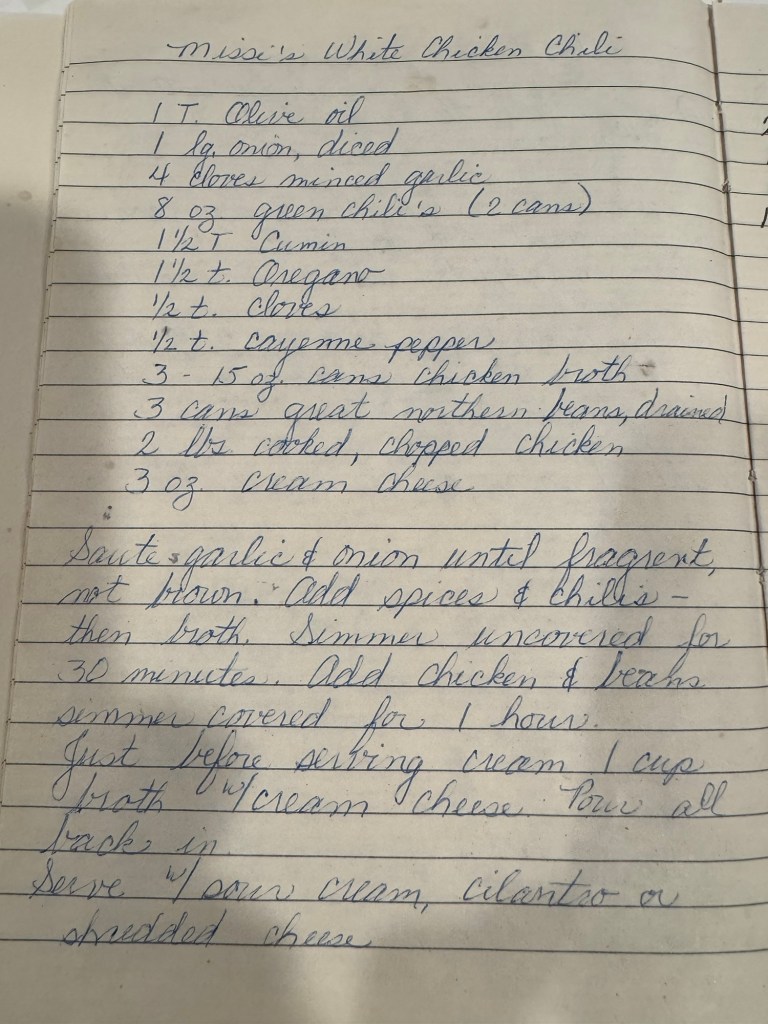 Missi's White Chicken Chili
1 T. Olive oil
1 lg. onion, diced
4 cloves minced garlic
8 oz green chili's (2 cans)
1 1/2 T Cumin
1 1/2 t. Oregano
1/2 t. cloves
1/2 t. cayenne pepper
3 - 15 oz. cans chicken broth
3 cans great northern beans, drained
2 lbs cooked, chopped chicken
3 oz. cream cheese
Saute garlic & onion until fragrent,
not brown. Add spices & chilis -
then broth. Simmer uncovered for
30 minutes. Add chicken & beans
simmer covered for 1 hour.
Just before serving cream 1 cup
broth w/ cream cheese. Pour all
back in.
Serve w/ sour cream, cilantro or
shredded cheese